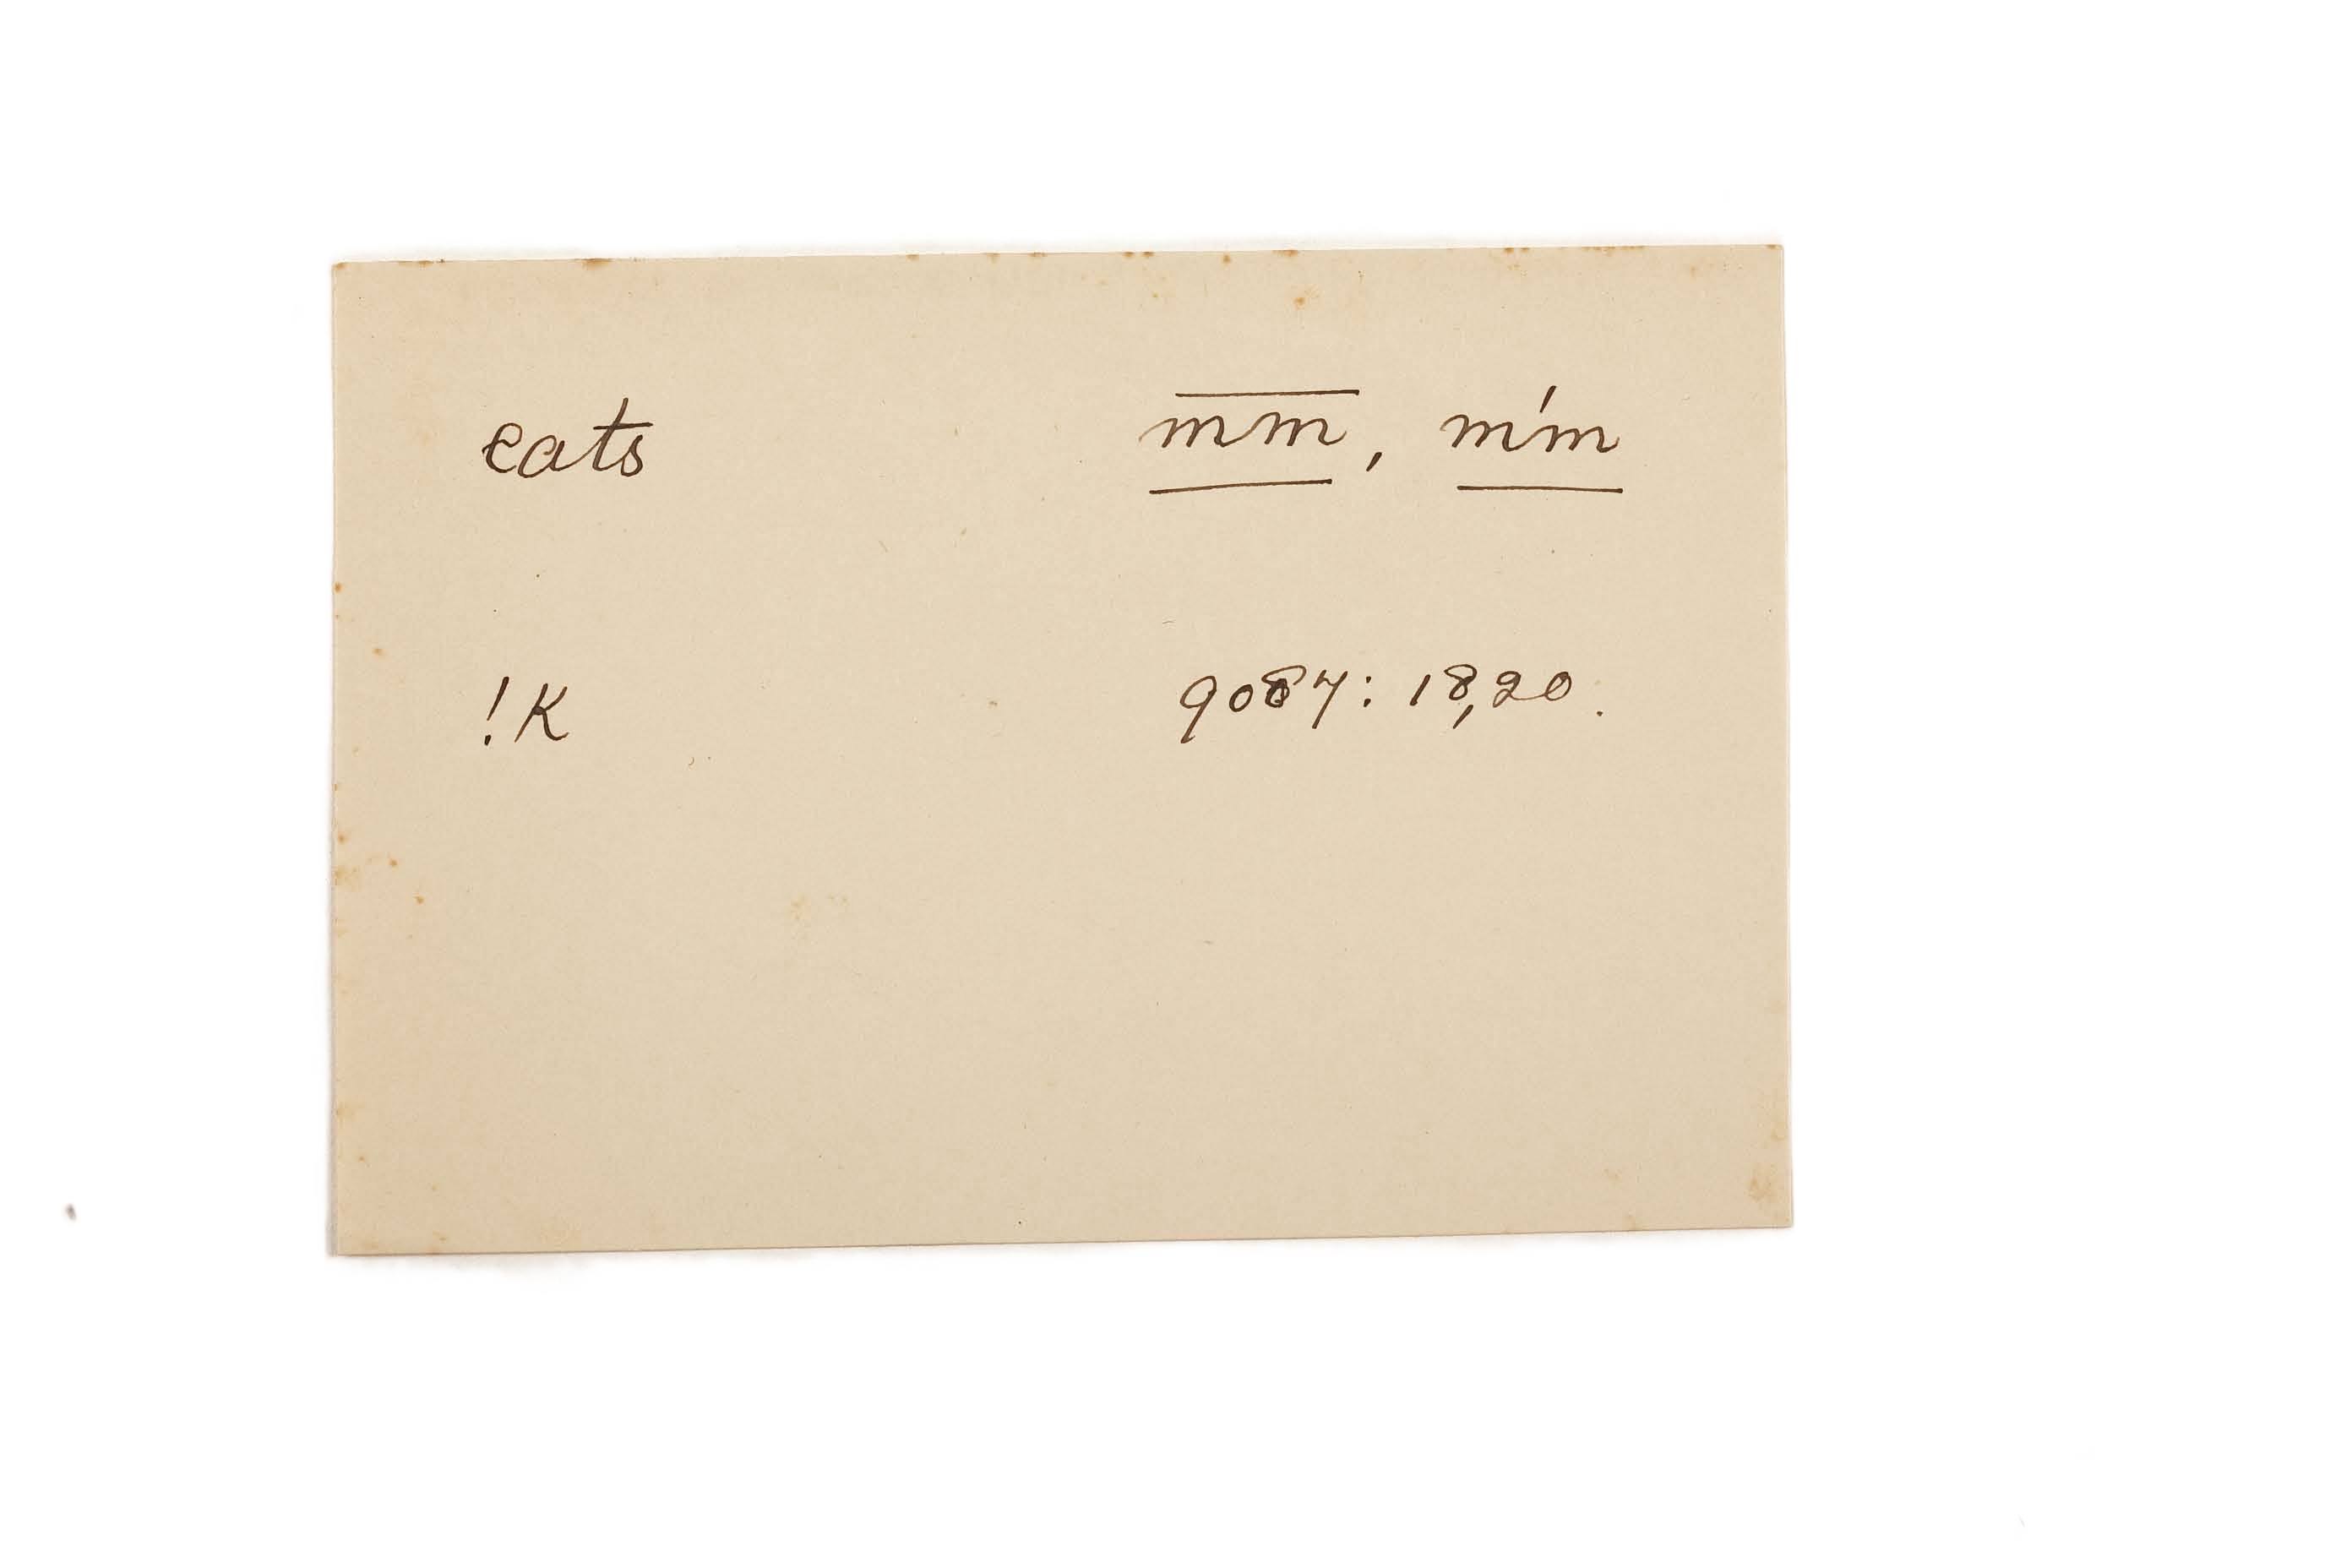 eats m̅m̅, mḿ
!K 9087: 18,20.